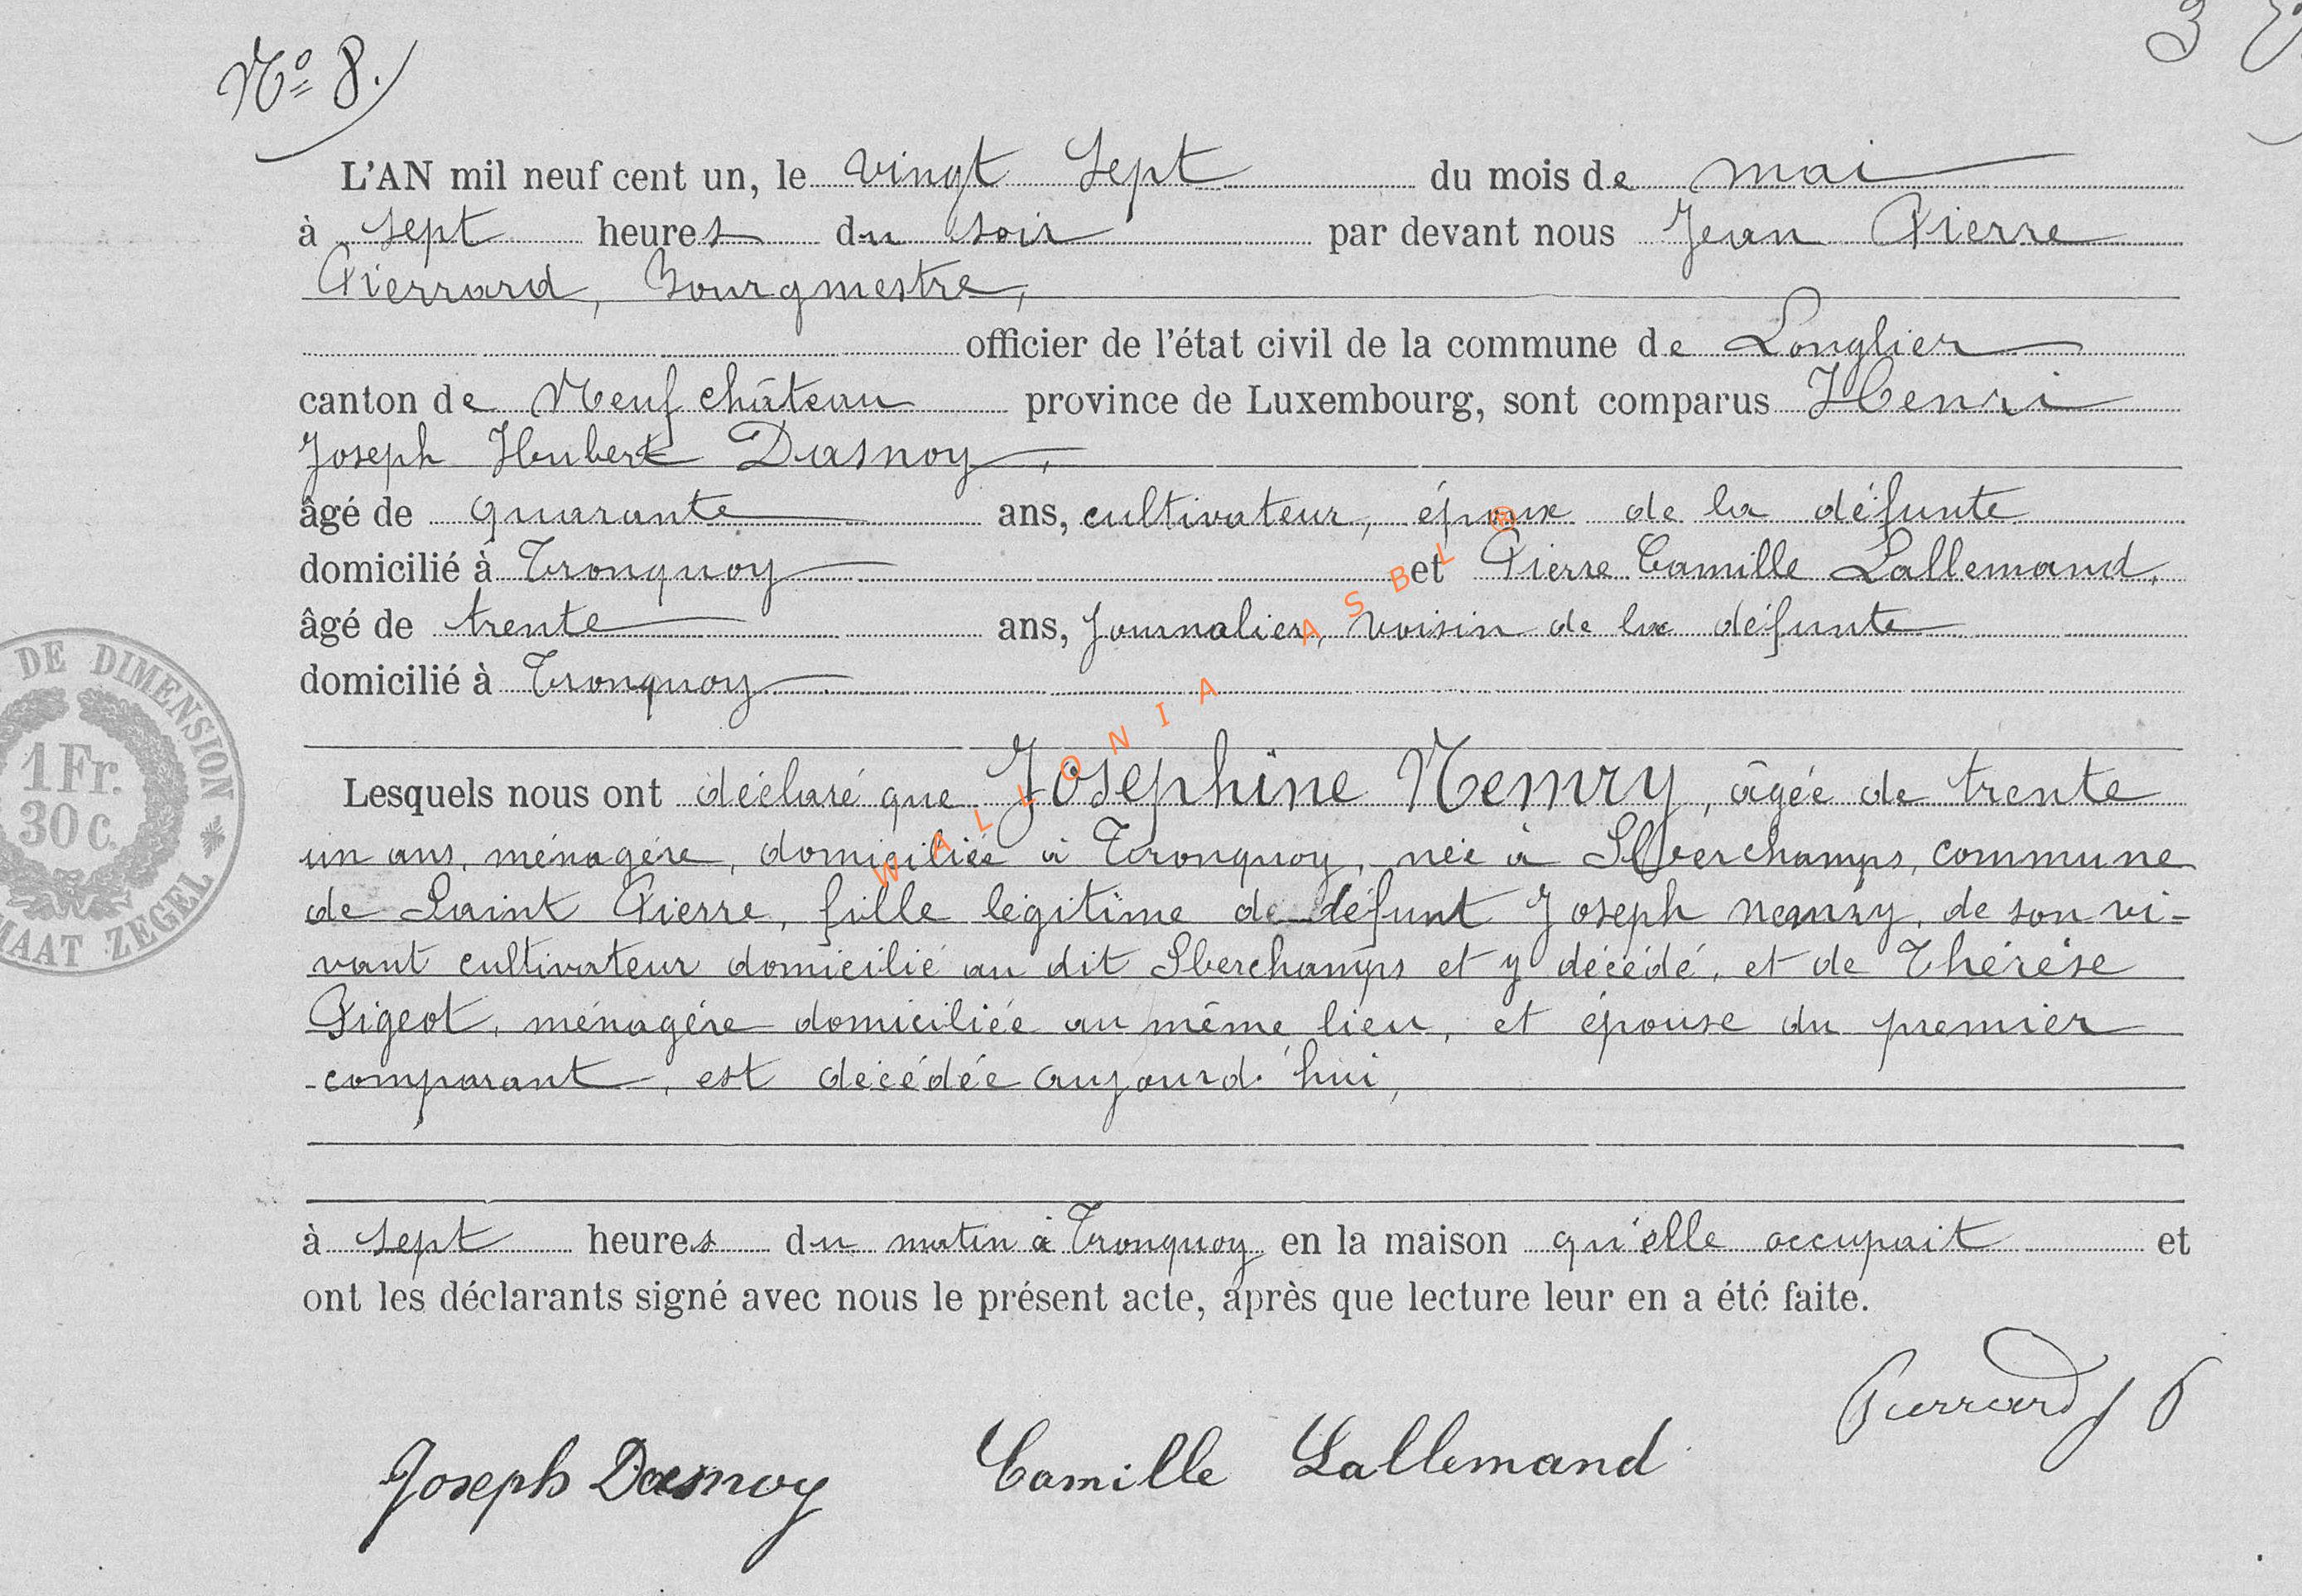 Nº 8.
L'AN mil neuf cent un, le vingt sept du mois de mai
à sept heures du soir par devant nous Jean Pierre
Pierrard, Bourgmestre,
officier de l'état civil de la commune de Longlier
canton de Neufchâteau province de Luxembourg, sont comparus Henri
Joseph Hubert Dasnoy,
âgé de quarante ans, cultivateur, époux de la défunte
domicilié à Tronquoy et Pierre Camille Lallemand,
âgé de trente ans, Journalier, voisin de la défunte
domicilié à Tronquoy
Lesquels nous ont déclaré que Josephine Nemry, âgée de trente
un ans, ménagère, domiciliée à Tronquoy, née à Sberchamps, commune
de Saint Pierre, fille légitime de défunt Joseph Nemry, de son vi-
vant cultivateur domicilié au dit Sberchamps et y décédé, et de Thérèse
Pigeot, ménagère domiciliée au même lieu, et épouse du premier
comparant, est décédée aujourd'hui,
à sept heures du matin à Tronquoy en la maison qu'elle occupait et
ont les déclarants signé avec nous le présent acte, après que lecture leur en a été faite.
Pierrard J P
Joseph Dasnoy Camille Lallemand
DE DIMENSION
1 Fr.
30 c.
MAAT ZEGEL
WALLONIA ASBL ®